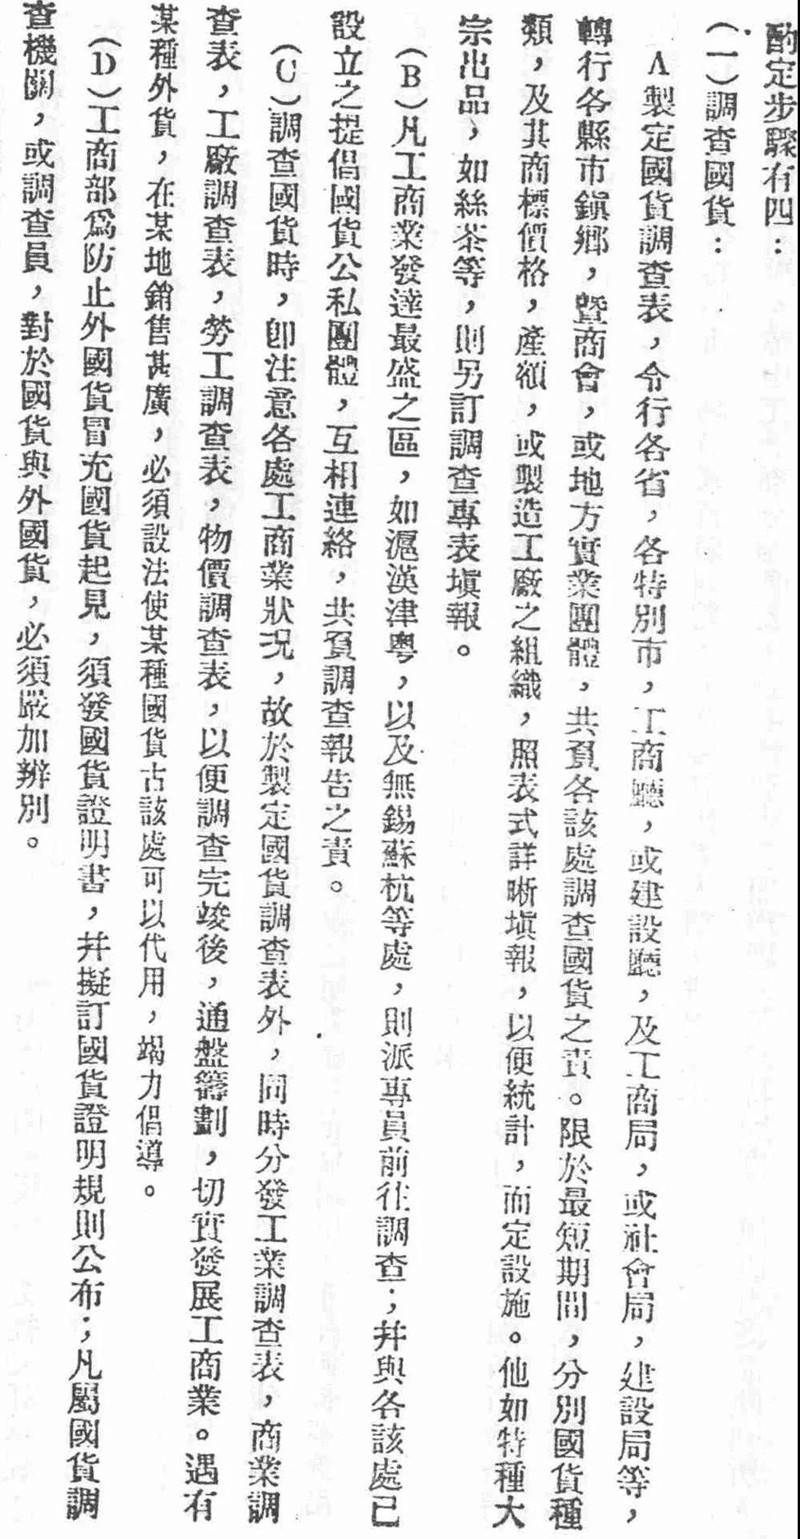 酌定步驟有四：
（一）調查國貨：
A製定國貨調查表，令行各省，各特別市，工商廳，或建設廳，及工商局，或社會局，建設局等，
轉行各縣市鎮鄉，暨商會，或地方實業團體，共負各該處調查國貨之責。限於最短期間，分別國貨種
類，及其商標價格，產額，或製造工廠之組織，照表式詳晰填報，以便統計，而定設施。他如特種大
宗出品，如絲茶等，則另訂調查專表填報。
（B）凡工商業發達最盛之區，如滬漢津粵，以及無錫蘇杭等處，則派專員前往調查；幷與各該處已
設立之提倡國貨公私團體，互相連絡，共負調查報告之責。
（C）調查國貨時，卽注意各處工商業狀况，故於製定國貨調查表外，同時分發工業調查表，商業調
查表，工廠調查表，勞工調查表，物價調查表，以便調查完竣後，通盤籌劃，切實發展工商業。遇有
某種外貨，在某地銷售甚廣，必須設法使某種國貨古該處可以代用，竭力倡導。
（D）工商部爲防止外國貨冒充國貨起見，須發國貨證明書，幷擬訂國貨證明規則公布；凡屬國貨調
查機關，或調查員，對於國貨與外國貨，必須嚴加辨別。